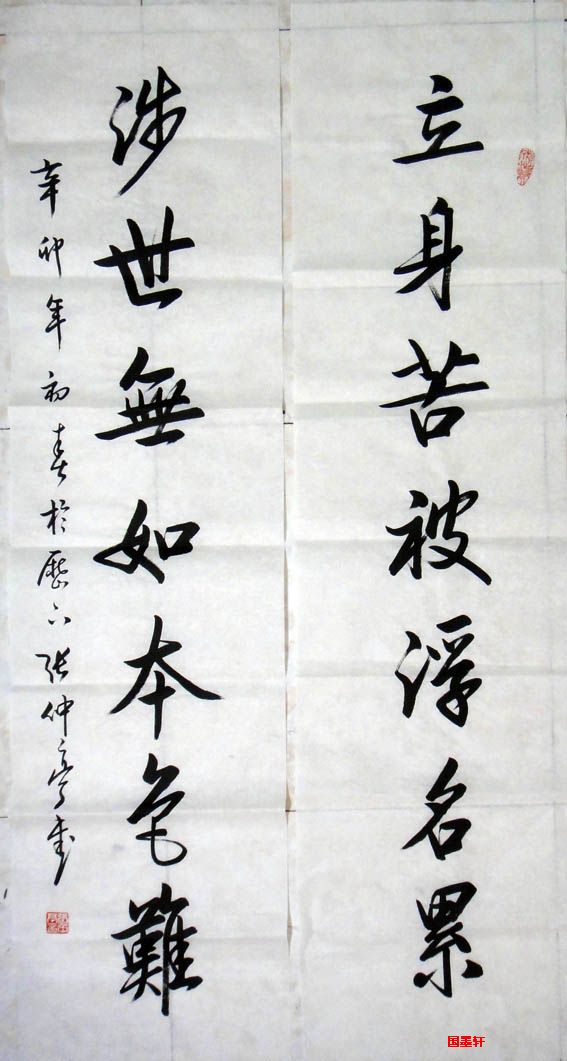 立身苦被浮名累
涉世無如本色難
辛卯年初春於歷下張仲亭書
国墨轩